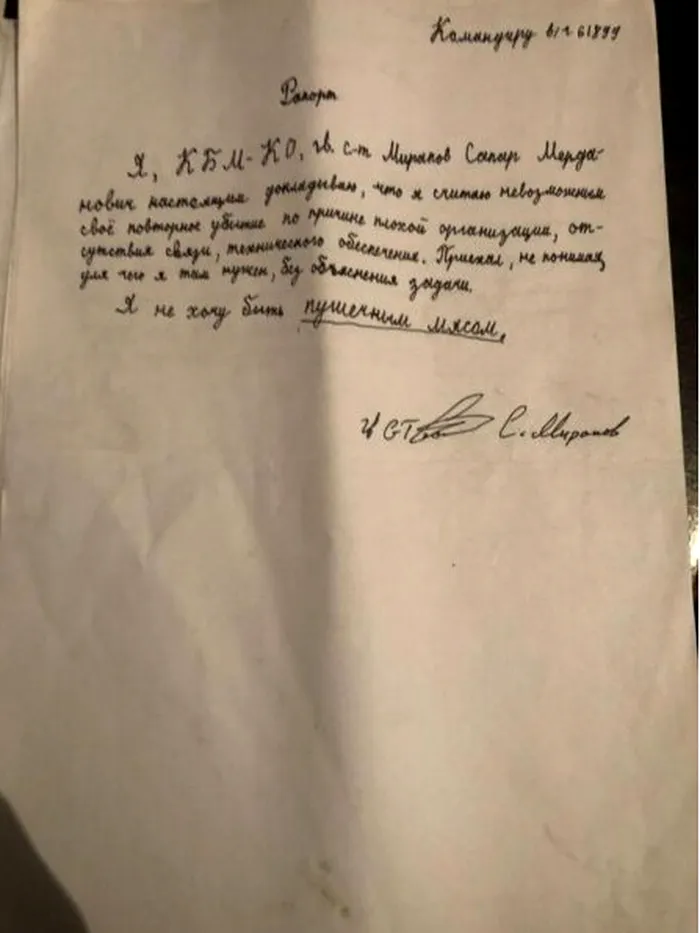 Командиру в/ч 61899
Рапорт
Я, КБМ-КО, гв. с-т Мирапов Сапар Мерда-
нович настоящим докладываю, что я считаю невозможным
своё повторное убытие по причине плохой организации, от-
сутствия связи, технического обеспечения. Приехал, не понимая,
для чего я там нужен, без объяснения задачи.
Я не хочу быть пушечным мясом,
С. Мирапов